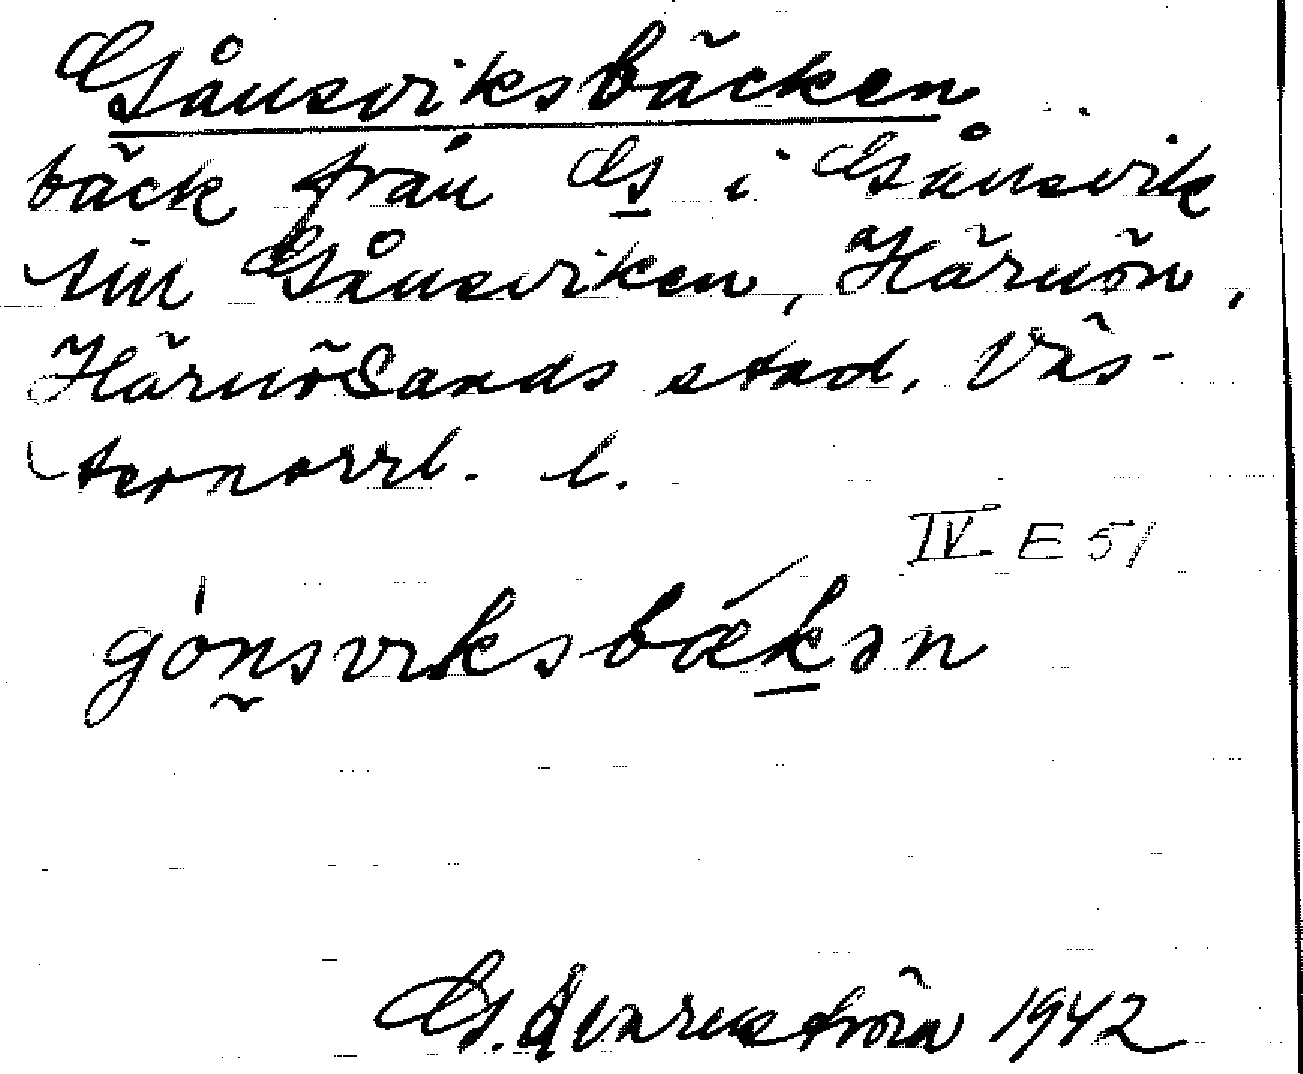 Gånsviksbäcken
bäck från G i Gånsvik
till Gånsviken, Härnön,
Härnösands stad, Väs-
ternorrl. l.
IV E 51
gånsviksbækən
G. Kvarnström 1942